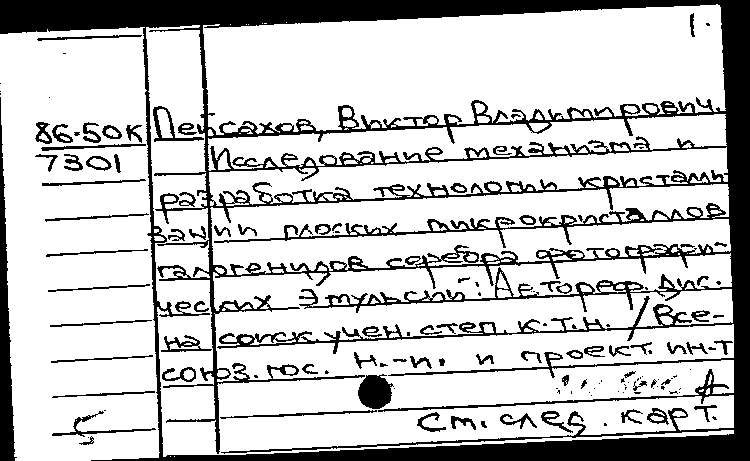 1.
86-50К Пейсахов, Виктор Владимирович.
7301 Исследование механизма и
разработка технологии кристалли-
зации плоских микрокристаллов
галогенидов серебра фотографи-
ческих эмульсий: Автореф. дис.
на соиск. учен. степ. к.т.н. / Все-
союз. гос. н.-и. и проект. ин-т
См. след. карт.